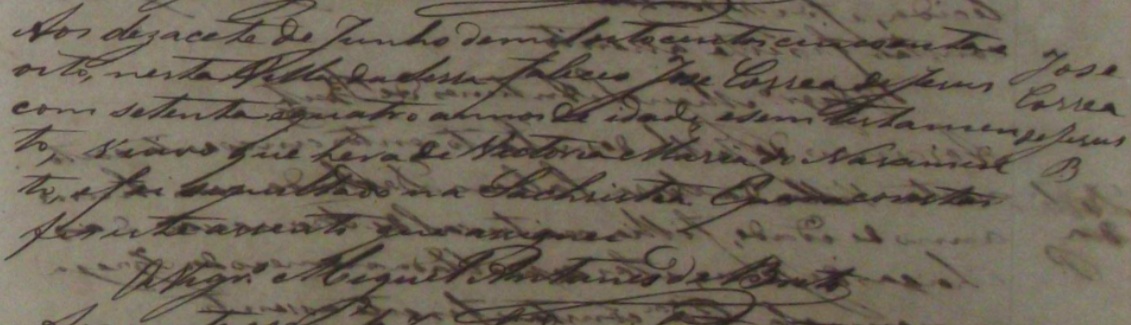 Aos dezacete de Junho de mil oitocentos cincoenta e
oito, nesta Villa da Serra faleceo Jose Correa de Jesus
com setenta e quatro annos de idade, e sem testamen
to, viuvo que hera de Victoria Maria do Nascimen
to, e foi sepultado na Sachristia E para constar
fiz este assento que assignei
O Vigr.º Miguel Antunes de Brito
Jose
Correa
de Jesus
B